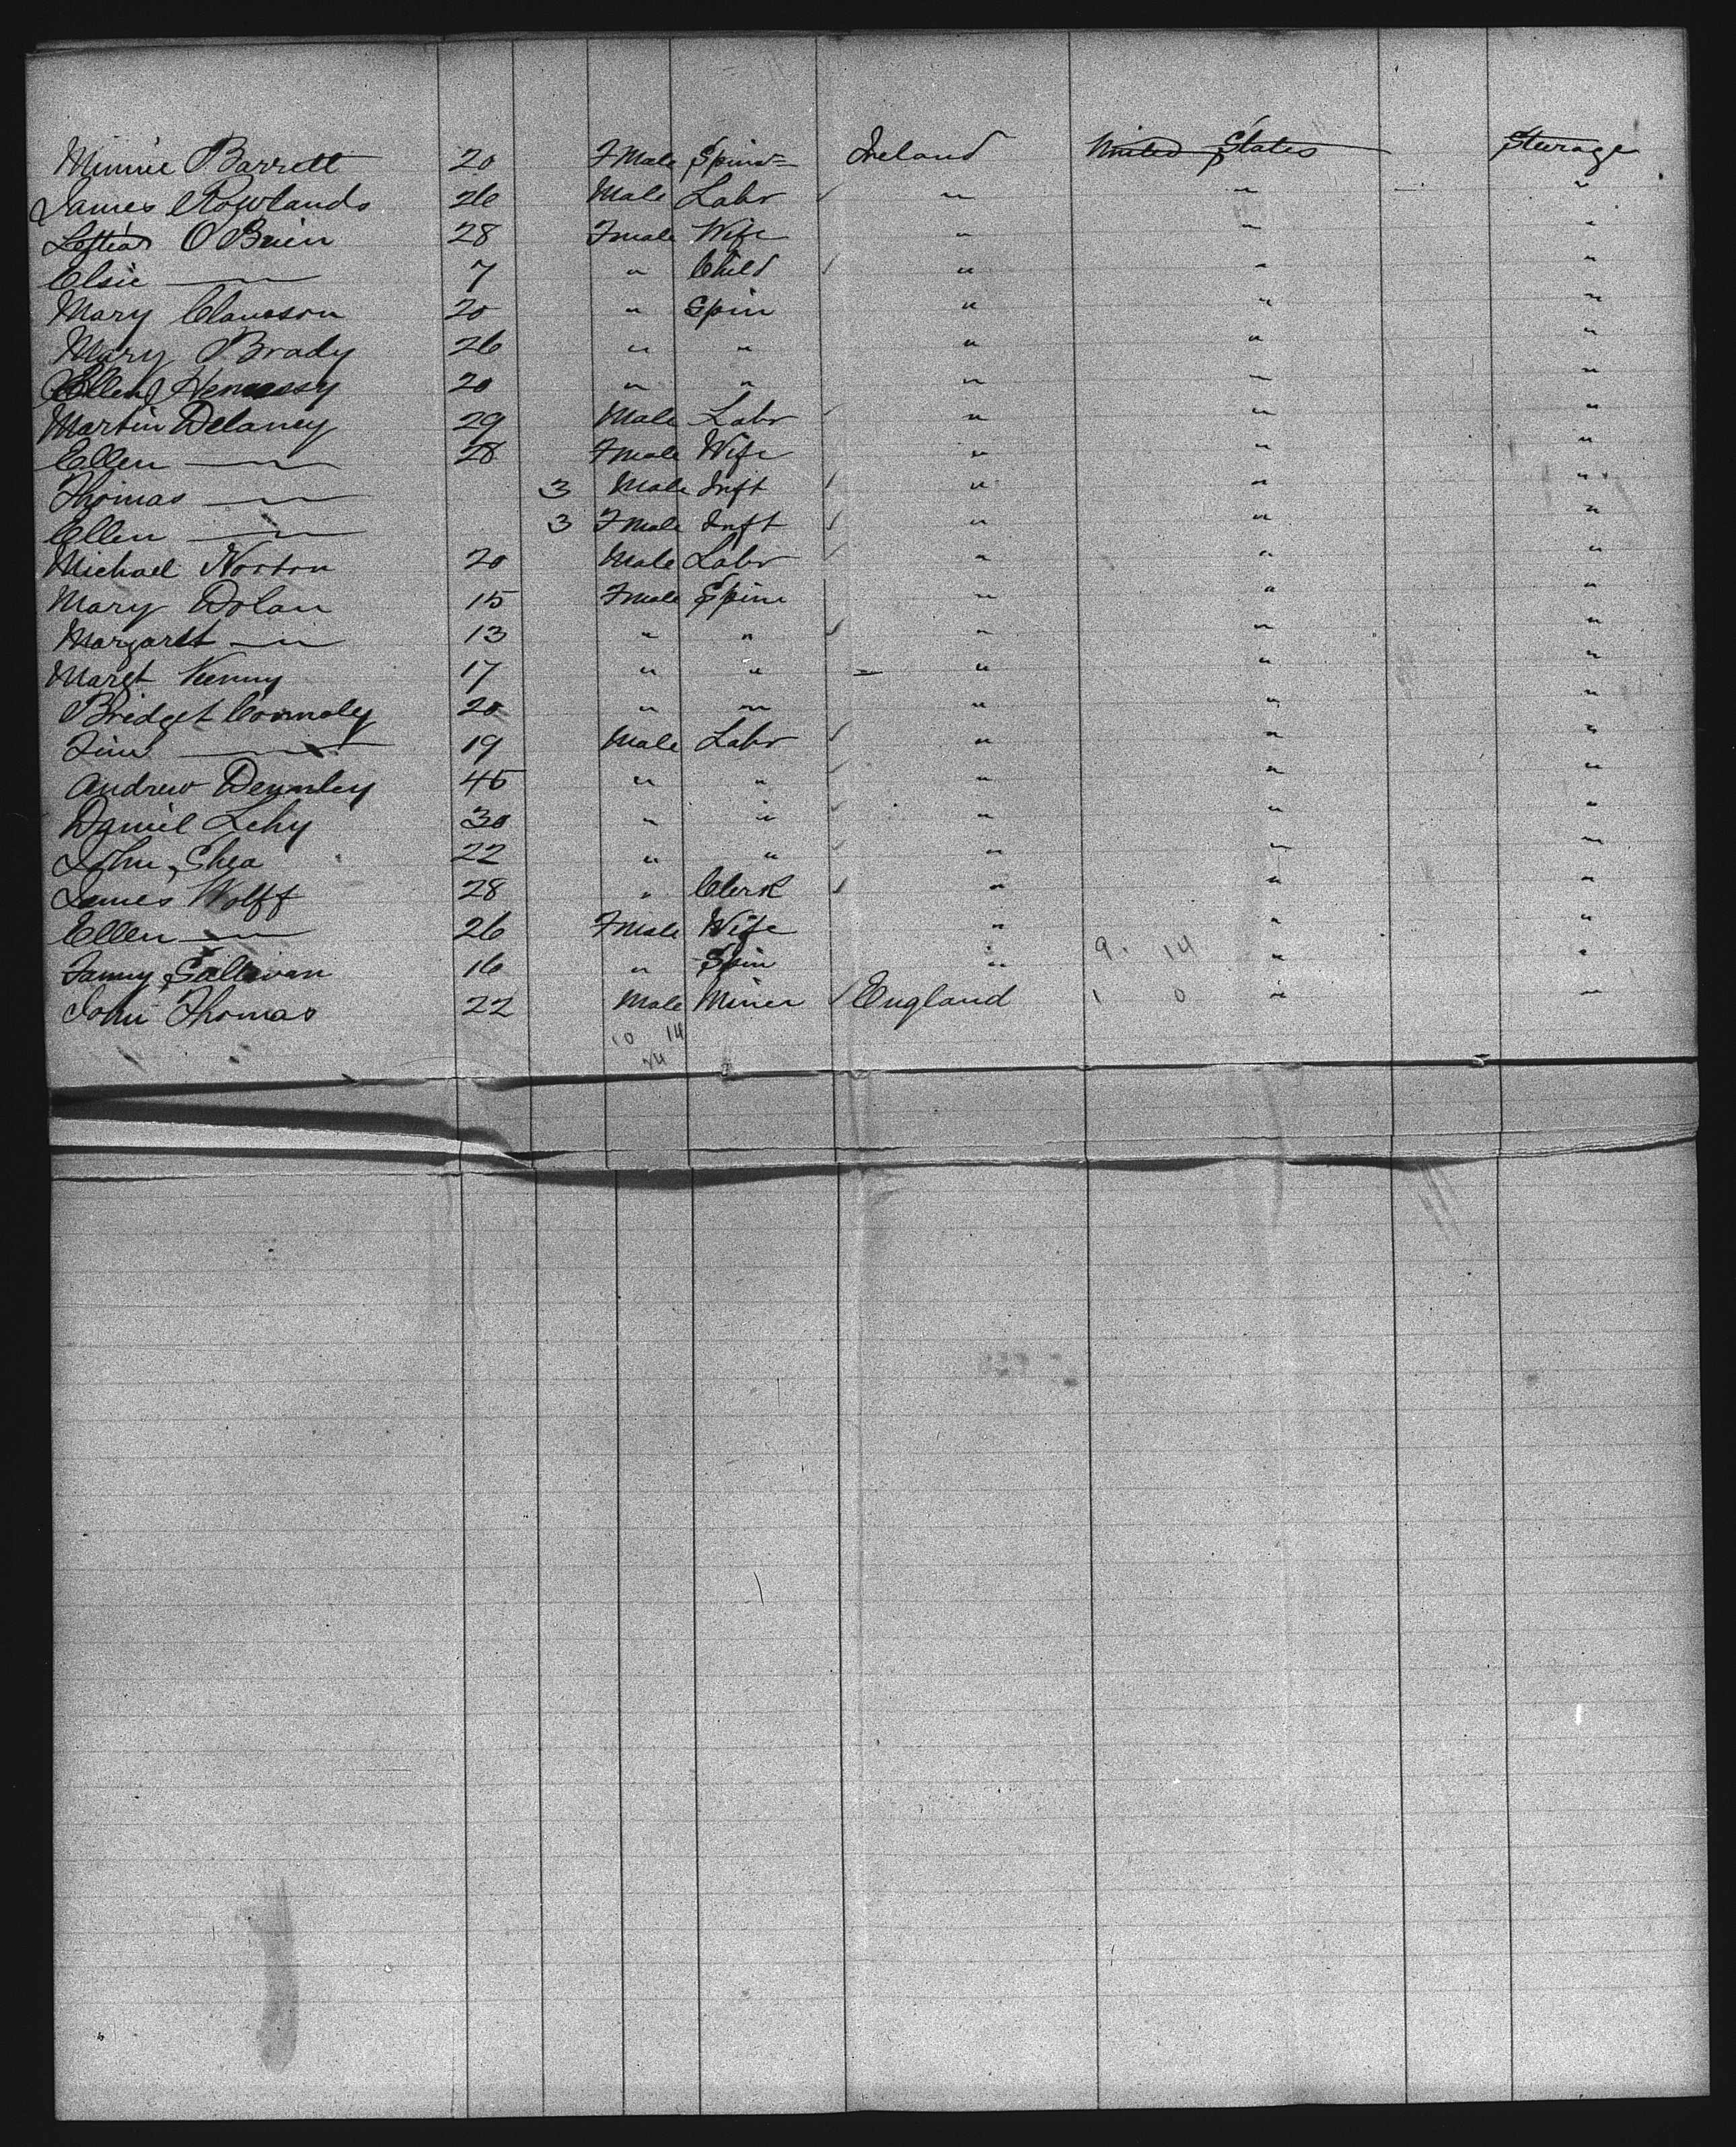 Minnie Barrett 20 Fmale Spins Ireland United States Steerage
James Rowlands 26 Male Labr " " "
O Brien 28 Fmale Wife " " "
Elsie — " — 7 " Child " " "
Mary Clauson 20 " Spin " " "
Mary Brady 26 " " " " "
Ellen Hennessy 20 " " " " "
Martin Delaney 29 Male Labr " " "
Ellen — " — 28 Fmale Wife " " "
Thomas — " — 3 Male Inft " " "
Ellen — " — 3 Fmale Inft " " "
Michael Norton 20 Male Labr " " "
Mary Dolan 15 Fmale Spin " " "
Margaret — " — 13 " " " " "
Margt Kenny 17 " " " " "
Bridget Connoly 20 " " " " "
— " — 19 Male Labr " " "
Andrew 45 " " " " "
Daniel Lehy 30 " " " " "
John Shea 22 " " " " "
James Wolff 28 " Clerk " " "
Ellen — " — 26 Fmale Wife " " "
Fanny Sullivan 16 " Spin " 9 14 " "
John Thomas 22 Male Miner England 1 0 " "
10 14
24